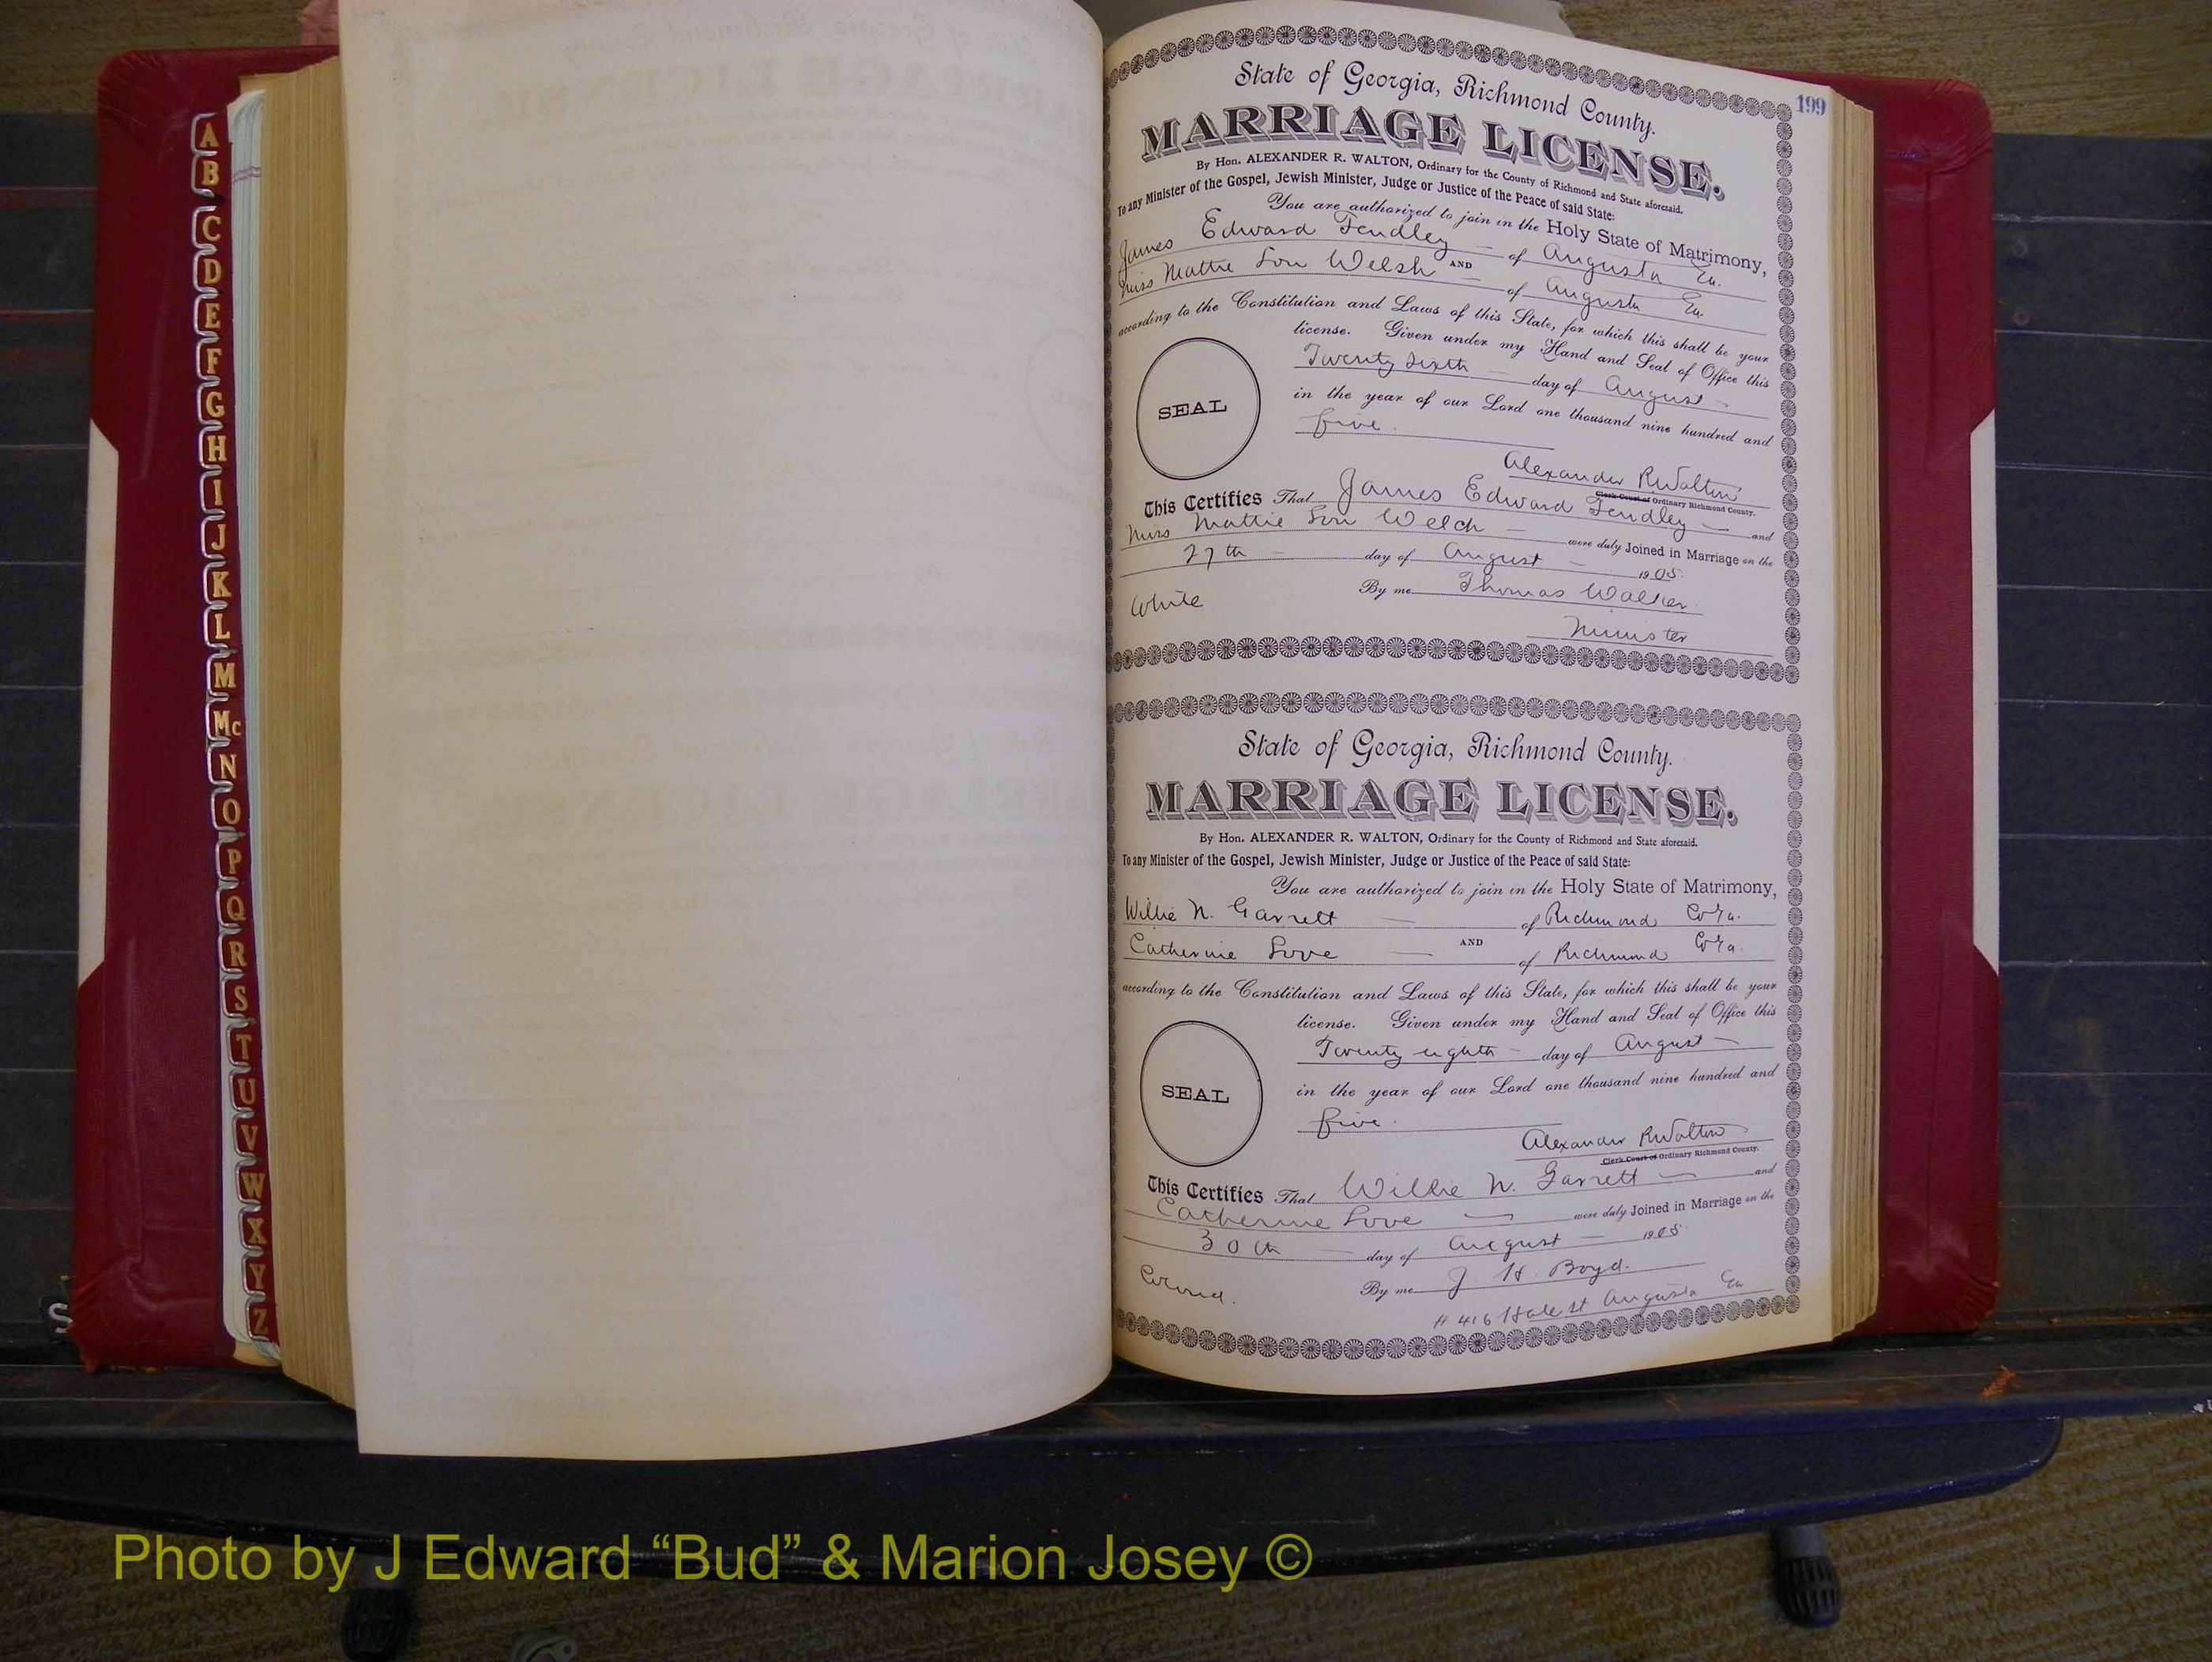 A
B
C
D
E
F
G
H
I
J
K
L
M
Mc
N
O
P
Q
R
S
T
U
V
W
X
Y
Z
199
State of Georgia, Richmond County.
MARRIAGE LICENSE.
By Hon. ALEXANDER R. WALTON, Ordinary for the County of Richmond and State aforesaid.
To any Minister of the Gospel, Jewish Minister, Judge or Justice of the Peace of said State:
You are authorized to join in the Holy State of Matrimony,
James Edward Fendley of Augusta Ga.
AND
Miss Mattie Lou Welsh of Augusta Ga.
according to the Constitution and Laws of this State, for which this shall be your
license. Given under my Hand and Seal of Office this
Twenty sixth day of August
in the year of our Lord one thousand nine hundred and
five.
SEAL
Alexander R Walton
Clerk Court of Ordinary Richmond County.
This Certifies That James Edward Fendley and
Miss Mattie Lou Welch were duly Joined in Marriage on the
27th day of August 1905.
By me Thomas Walker.
White
Minister
State of Georgia, Richmond County.
MARRIAGE LICENSE.
By Hon. ALEXANDER R. WALTON, Ordinary for the County of Richmond and State aforesaid.
To any Minister of the Gospel, Jewish Minister, Judge or Justice of the Peace of said State:
You are authorized to join in the Holy State of Matrimony,
Willie N. Garrett of Richmond Co Ga.
AND
Catherine Love of Richmond Co Ga.
according to the Constitution and Laws of this State, for which this shall be your
license. Given under my Hand and Seal of Office this
Twenty eighth day of August
in the year of our Lord one thousand nine hundred and
five.
SEAL
Alexander R Walton
Clerk Court of Ordinary Richmond County.
This Certifies That Willie N. Garrett and
Catherine Love were duly Joined in Marriage on the
30th day of August 1905
By me J H. Boyd.
Colored.
# 416 Hale st Augusta Ga
Photo by J Edward “Bud” & Marion Josey ©